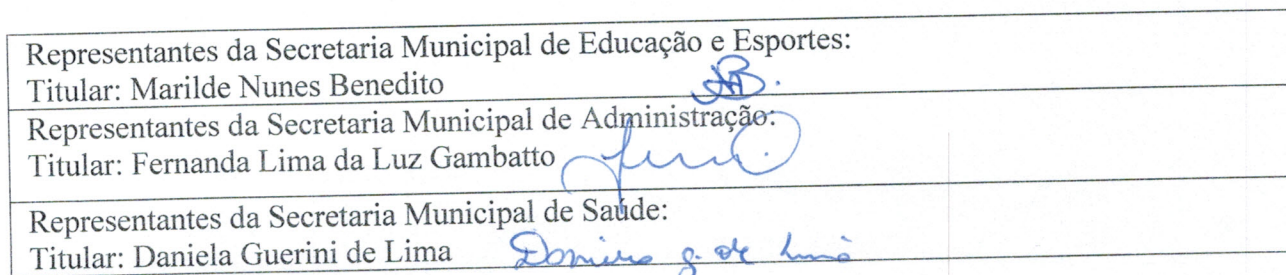 Representantes da Secretaria Municipal de Educação e Esportes:
Titular: Marilde Nunes Benedito
Representantes da Secretaria Municipal de Administração:
Titular: Fernanda Lima da Luz Gambatto
Representantes da Secretaria Municipal de Saúde:
Titular: Daniela Guerini de Lima